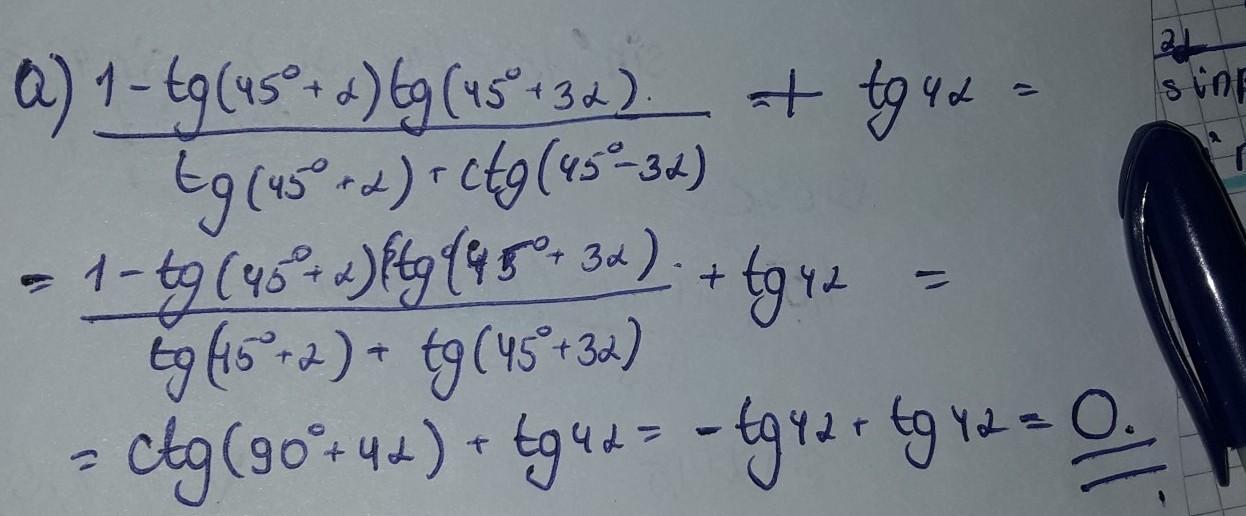 a) 1-tg(45°+α)tg(45°+3α). + tg4α =
tg(45°+α)+ctg(45°-3α)
= 1-tg(45°+α)tg(45°+3α). + tg4α =
tg(45°+α)+ tg(45°+3α)
= ctg(90°+4α) + tg4α = -tg4α + tg4α = 0.